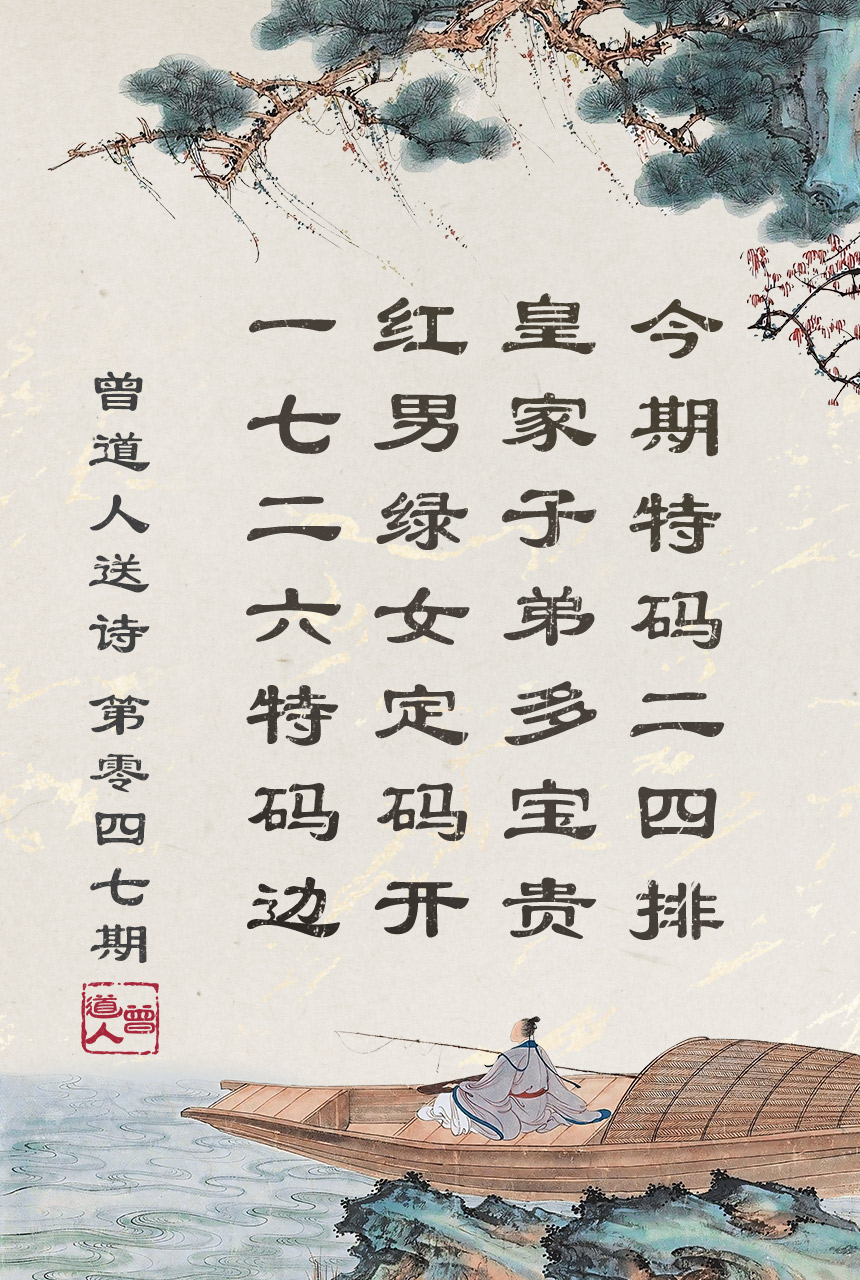 今期特码二四排
皇家子弟多宝贵
红男绿女定码开
一七二六特码边
曾道人送诗 第零四七期
曾道人